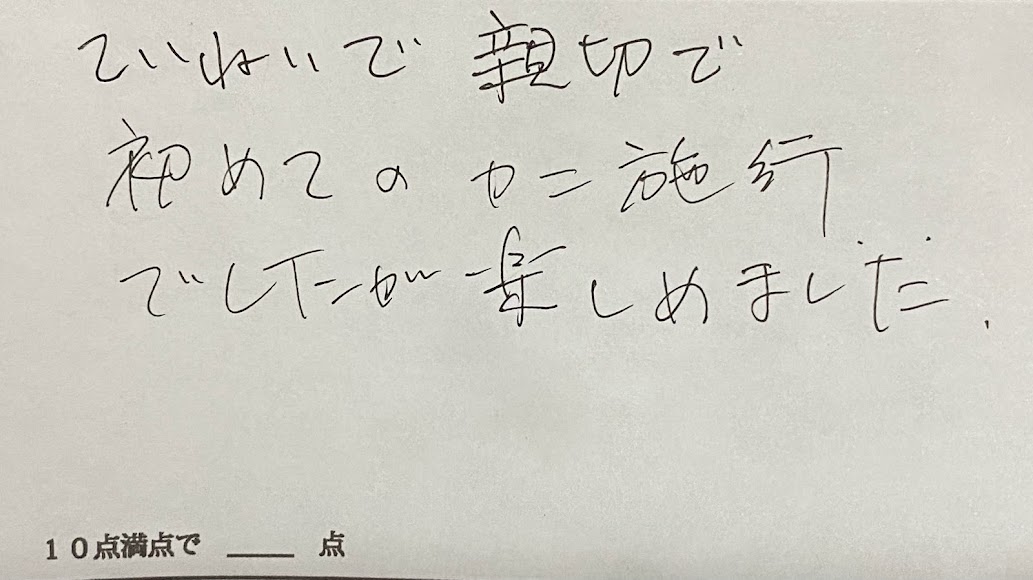 ていねいで 親切で
初めてのカニ施行
でしたが楽しめました.
10点満点で ____ 点